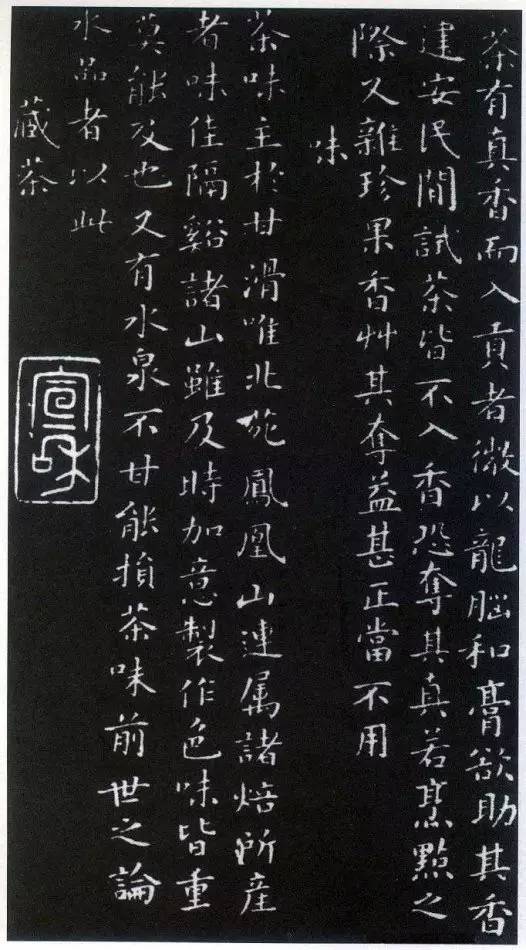 茶有真香而入貢者微以龍腦和膏欲助其香
建安民間試茶皆不入香恐奪其真若烹點之
際又雜珍果香艸其奪益甚正當不用
味
茶味主於甘滑唯北苑鳳凰山連属諸焙所産
者味佳隔谿諸山雖及時加意製作色味皆重
莫能及也又有水泉不甘能損茶味前世之論
水品者以此
藏茶
宣和